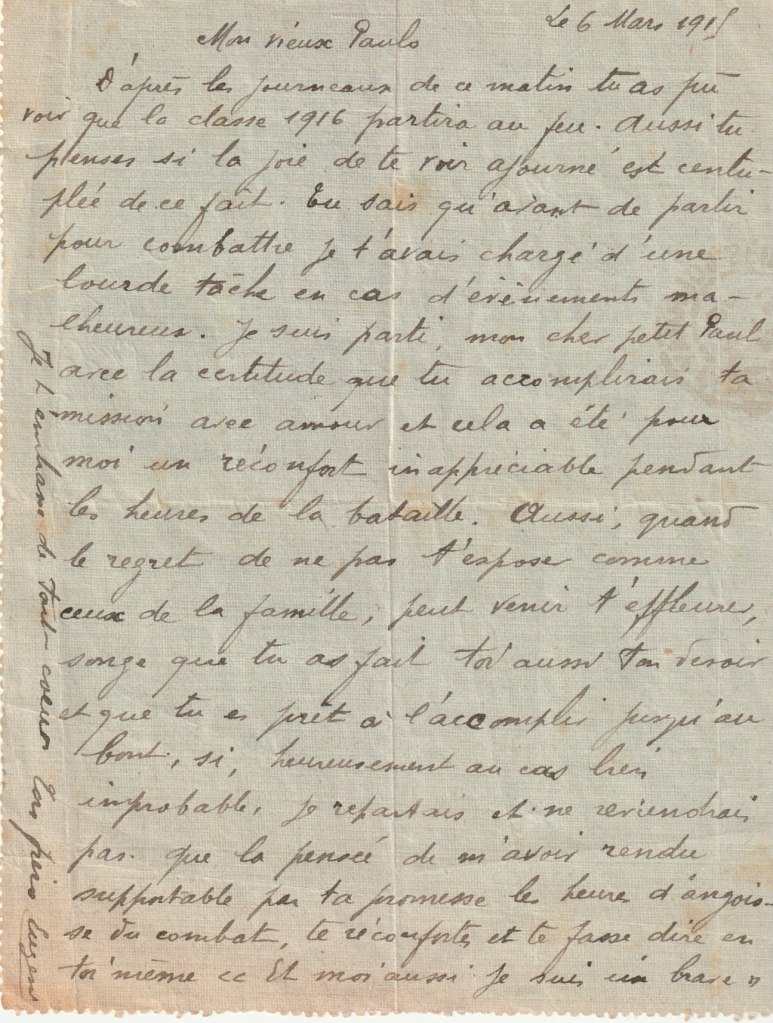 Le 6 Mars 1915
Mon vieux Paulo
D'après les journeaux de ce matin tu as pu
voir que la classe 1916 partira au feu. Aussi tu
penses si la joie de te voir ajourné est centu-
plée de ce fait. Tu sais qu'avant de partir
pour combattre je t'avais chargé d'une
lourde tâche en cas d'évènements ma-
lheureux. Je suis parti, mon cher petit Paul
avec la certitude que tu accomplirais ta
mission avec amour et cela a été pour
moi un réconfort inappréciable pendant
les heures de la bataille. Aussi, quand
le regret de ne pas t'expose comme
ceux de la famille, peut venir t'effleurer,
songe que tu as fait toi aussi ton devoir
et que tu es prêt à l'accomplir jusqu'au
bout, si, heureusement au cas bien
improbable, je repartais et ne reviendrais
pas. que la pensée de m'avoir rendu
supportable par ta promesse les heure d'angois-
se du combat, te réconfortes et te fasse dire en
toi même " Et moi aussi je suis un brave "
Je t'embrasse de tout coeur Ton frère Eugène